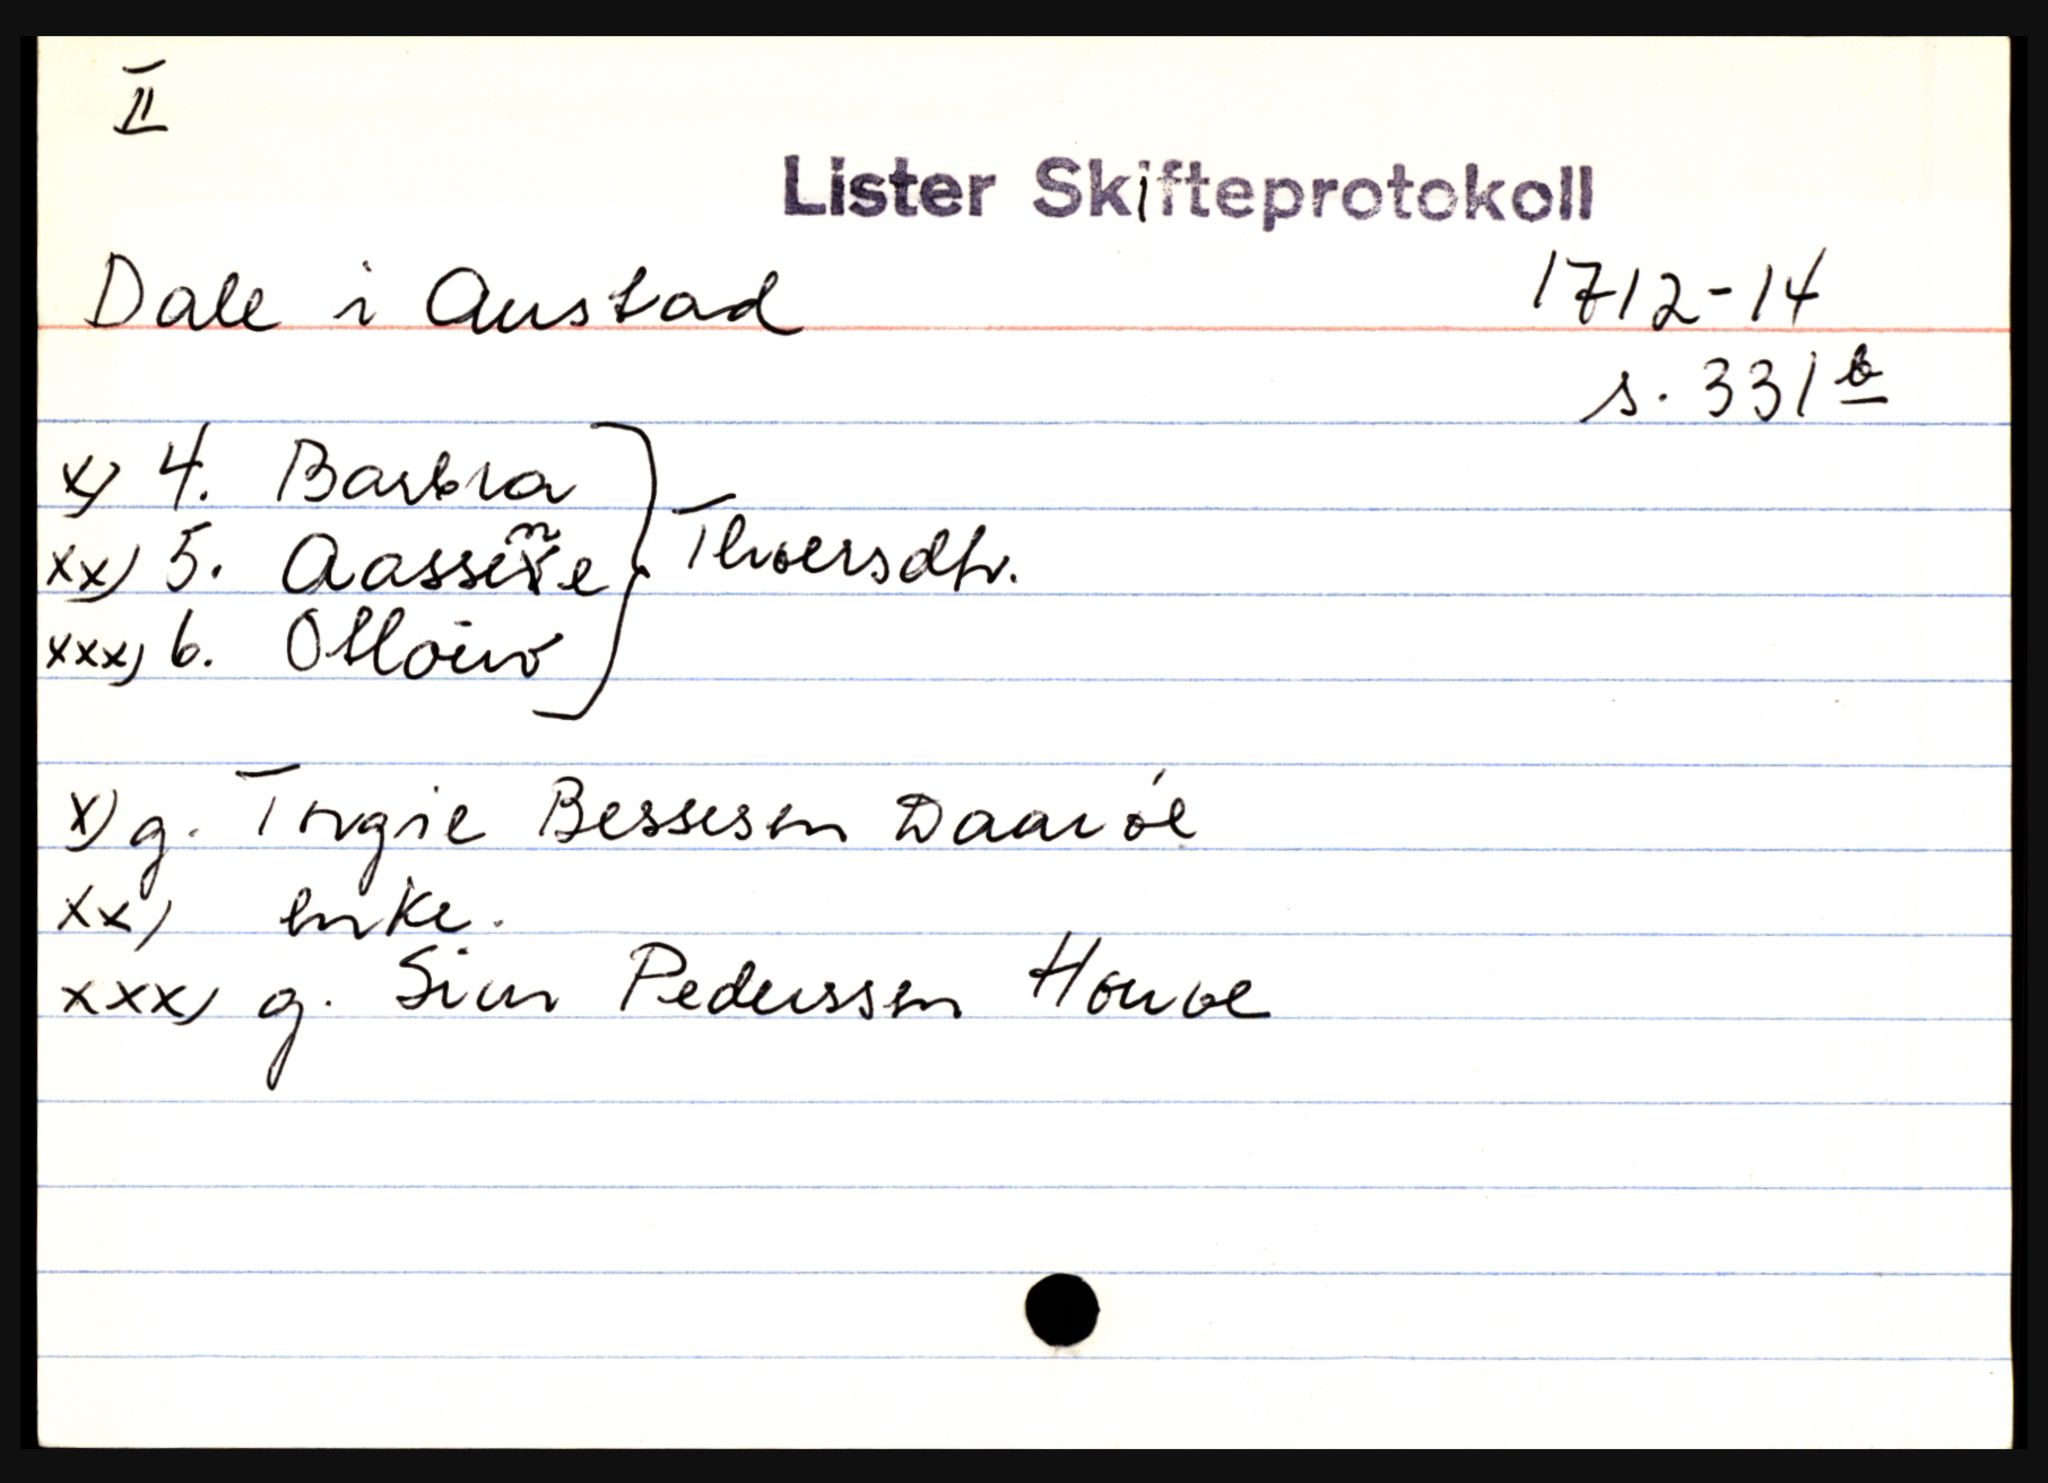 II
Lister Skifteprotokoll
Dale i Austad 1712-14
s. 331 b
x) 4. Barbra
xx) 5. Aassine Thversdtr.
xxx) 6. Olløuv
x) g. Torgie Bessesen Daarøe
xx) enke.
xxx) g. Siur Pederssen Houve